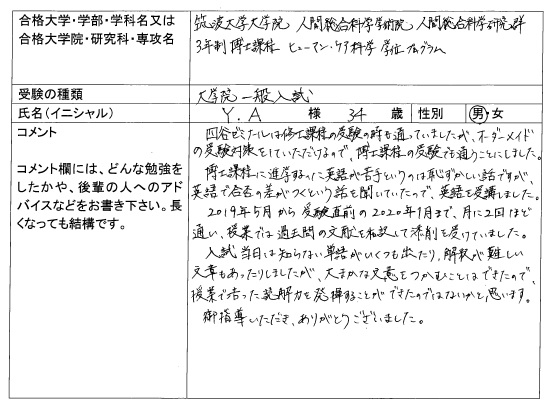 合格大学・学部・学科名又は
合格大学院・研究科・専攻名
筑波大学大学院 人間総合科学学術院 人間総合科学研究群
3年制博士課程 ヒューマン・ケア科学 学位プログラム
受験の種類
大学院 一般入試
氏名(イニシャル)
Y. A 様 34 歳 性別 男・女
コメント
コメント欄には、どんな勉強を
したかや、後輩の人へのアド
バイスなどをお書き下さい。長
くなっても結構です。
四谷ゼミナールは修士課程の受験の時も通っていましたが、オーダーメイド
の受験対策をしていただけるので、博士課程の受験でも通うことにしました。
博士課程に進学するのに英語が苦手というのは恥ずかしい話ですが、
英語で合否の差がつくという話を聞いていたので、英語を受講しました。
2019年5月から受験直前の2020年1月まで、月に2回ほど
通い、授業では過去問の文献を和訳して添削を受けていました。
入試当日は知らない単語がいくつも出たり、解釈が難しい
文章もあったりしましたが、大まかな文意をつかむことはできたので、
授業で培った読解力を発揮することができたのではないかと思います。
御指導いただき、ありがとうございました。